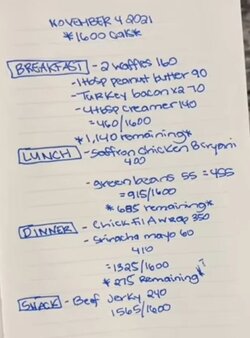 NOVEMBER 4 2021
*1600 cals*
BREAKFAST - 2 waffles 160
- 1 tbsp peanut butter 90
- Turkey bacon x2 70
- 4 tbsp creamer 140
= 460/1600
*1,140 remaining*
LUNCH - Saffron Chicken Biryani
400
- green beans 55 = 455
= 915/1600
* 685 remaining*
DINNER - Chick fil A wrap 350
- Sriracha mayo 60
410
= 1325/1600
* 275 Remaining*
SNACK - Beef Jerky 240
1565/1600